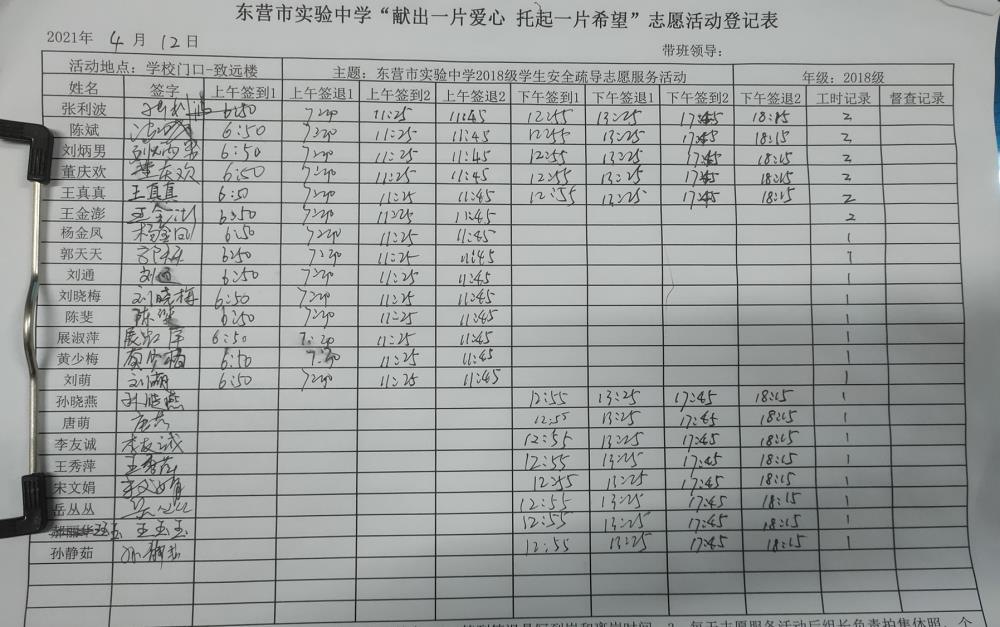 东营市实验中学“献出一片爱心 托起一片希望”志愿活动登记表
2021年 4 月 12 日 带班领导：
活动地点：学校门口-致远楼 主题：东营市实验中学2018级学生安全疏导志愿服务活动 年级：2018级
姓名 签字 上午签到1 上午签退1 上午签到2 上午签退2 下午签到1 下午签退1 下午签到2 下午签退2 工时记录 督查记录
张利波 6:50 7:20 11:25 11:45 12:55 13:25 17:45 18:15 2
陈斌 6:50 7:20 11:25 11:45 12:55 13:25 17:45 18:15 2
刘炳男 刘炳男 6:50 7:20 11:25 11:45 12:55 13:25 17:45 18:15 2
董庆欢 董庆欢 6:50 7:20 11:25 11:45 12:55 13:25 17:45 18:15 2
王真真 王真真 6:50 7:20 11:25 11:45 12:55 13:25 17:45 18:15 2
王金澎 王金澎 6:50 7:20 11:25 11:45 2
杨金凤 杨金凤 6:50 7:20 11:25 11:45 1
郭天天 6:50 7:20 11:25 11:45 1
刘通 刘通 6:50 7:20 11:25 11:45 1
刘晓梅 刘晓梅 6:50 7:20 11:25 11:45 1
陈斐 陈斐 6:50 7:20 11:25 11:45 1
展淑萍 6:50 7:20 11:25 11:45 1
黄少梅 黄少梅 6:50 7:20 11:25 11:45 1
刘萌 刘萌 6:50 7:20 11:25 11:45 1
孙晓燕 孙晓燕 12:55 13:25 17:45 18:15 1
唐萌 唐萌 12:55 13:25 17:45 18:15 1
李友诚 李友诚 12:55 13:25 17:45 18:15 1
王秀萍 王秀萍 12:55 13:25 17:45 18:15 1
宋文娟 宋文娟 12:55 13:25 17:45 18:15 1
岳丛丛 12:55 13:25 17:45 18:15 1
王玉玉 王玉玉 12:55 13:25 17:45 18:15 1
孙静茹 孙静茹 12:55 13:25 17:45 18:15 1
2、每天志愿服务活动后组长负责拍集体照，个